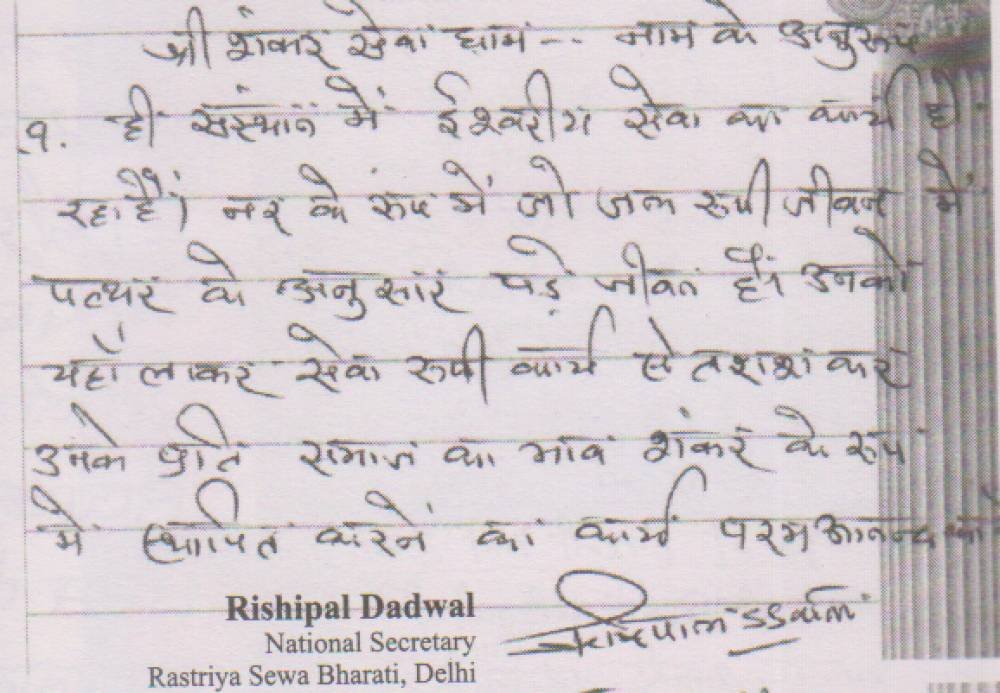 श्री शंकर सेवा धाम -- नाम के अनुरूप
१. ही संस्थान में ईश्वरीय सेवा का कार्य हो
रहा है। नर के रूप में जो जल रूपी जीवन में
पत्थर के अनुसार पड़े जीवत है। उनको
यहाँ लाकर सेवा रूपी कार्य से तराश कर
उनके प्रति समाज का भाव शंकर के रूप
में स्थापित करने का कार्य परम आनन्द का
Rishipal Dadwal
ऋषिपाल डडवाल
National Secretary
Rastriya Sewa Bharati, Delhi